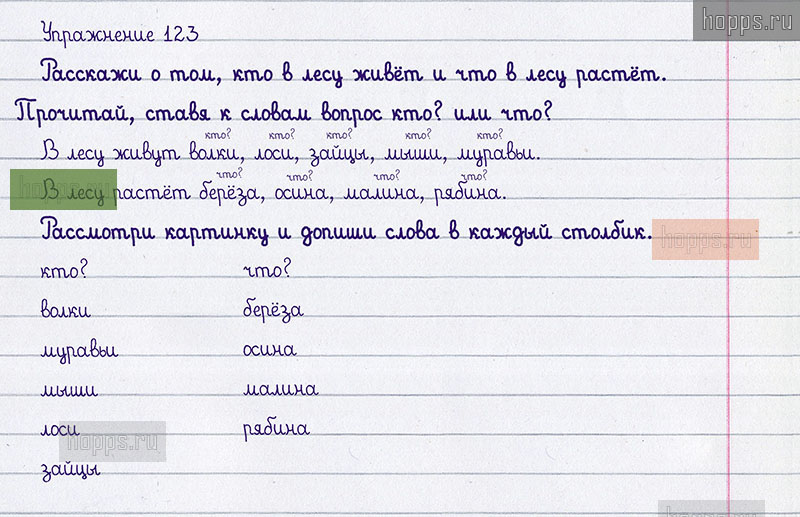 hopps.ru
Упражнение 123
Расскажи о том, кто в лесу живёт и что в лесу растёт.
Прочитай, ставя к словам вопрос кто? или что?
кто? кто? кто? кто? кто?
В лесу живут волки, лоси, зайцы, мыши, муравьи.
что? что? что? что?
В лесу растёт берёза, осина, малина, рябина.
hopps.ru
Рассмотри картинку и допиши слова в каждый столбик.
hopps.ru
кто? что?
волки берёза
муравьи осина
мыши малина
лоси рябина
hopps.ru
зайцы
hopps.ru